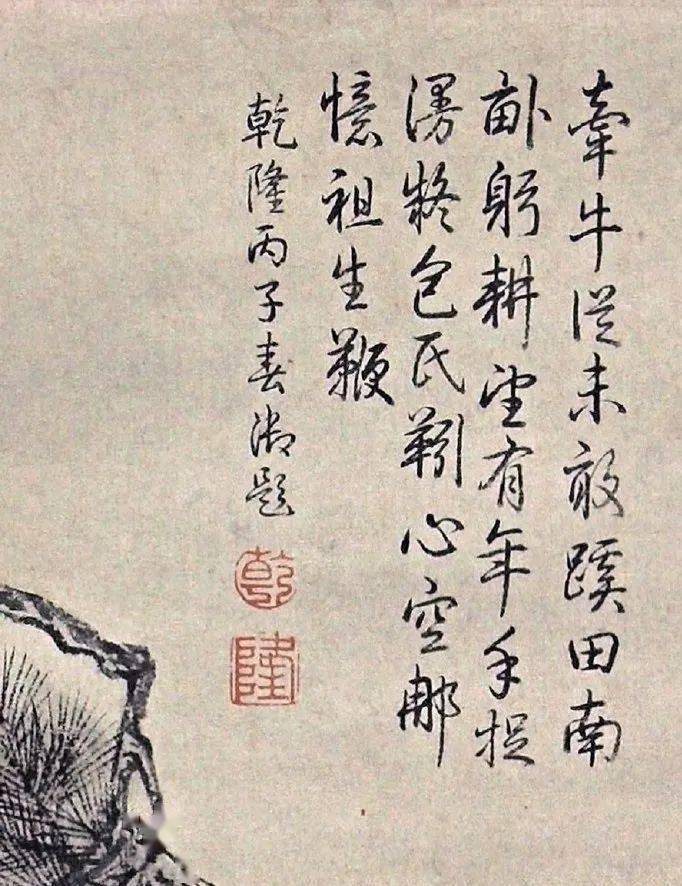 牽牛從未敢蹊田南
畝躬耕望有年手捉
漫將包氏靷心空那
憶祖生鞭
乾隆丙子春御題
乾
隆